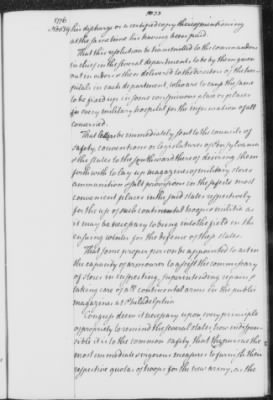 1776
Nov 19 his discharge or a certified copy thereof mentioning
at the same time his having been paid.
That this resolution be transmitted to the commanders
in chief in the several departments to be by them given
out in orders then delivered to the directors of the hos-
pitals in each department, who are to cause the same
to be fixed up in some conspicuous place or places
in every military hospital for the information of all
concerned.
That letters be immediately sent to the councils of
safety, conventions or legislatures of Pennsylvania
& the states to the southward thereof desiring them
forthwith to lay up magazines of military stores
ammunition & salt provisions in the safest & most
convenient places in the said states respectively
for the use of such continental troops & militia as
it may be necessary to bring into the field in the
ensuing winter for the defence of these states.
That some proper person be appointed to act in
the capacity of armourer to assist the commissary
of stores in inspecting, superintending repairs &
taking care of all continental arms in the public
magazines at Philadelphia
Congress deem it necessary upon every principle
of propriety to remind the several states, how indispen-
sible it is to the common safety that they pursue the
most immediate & vigorous measures to furnish their
respective quotas of troops for the new army, as the